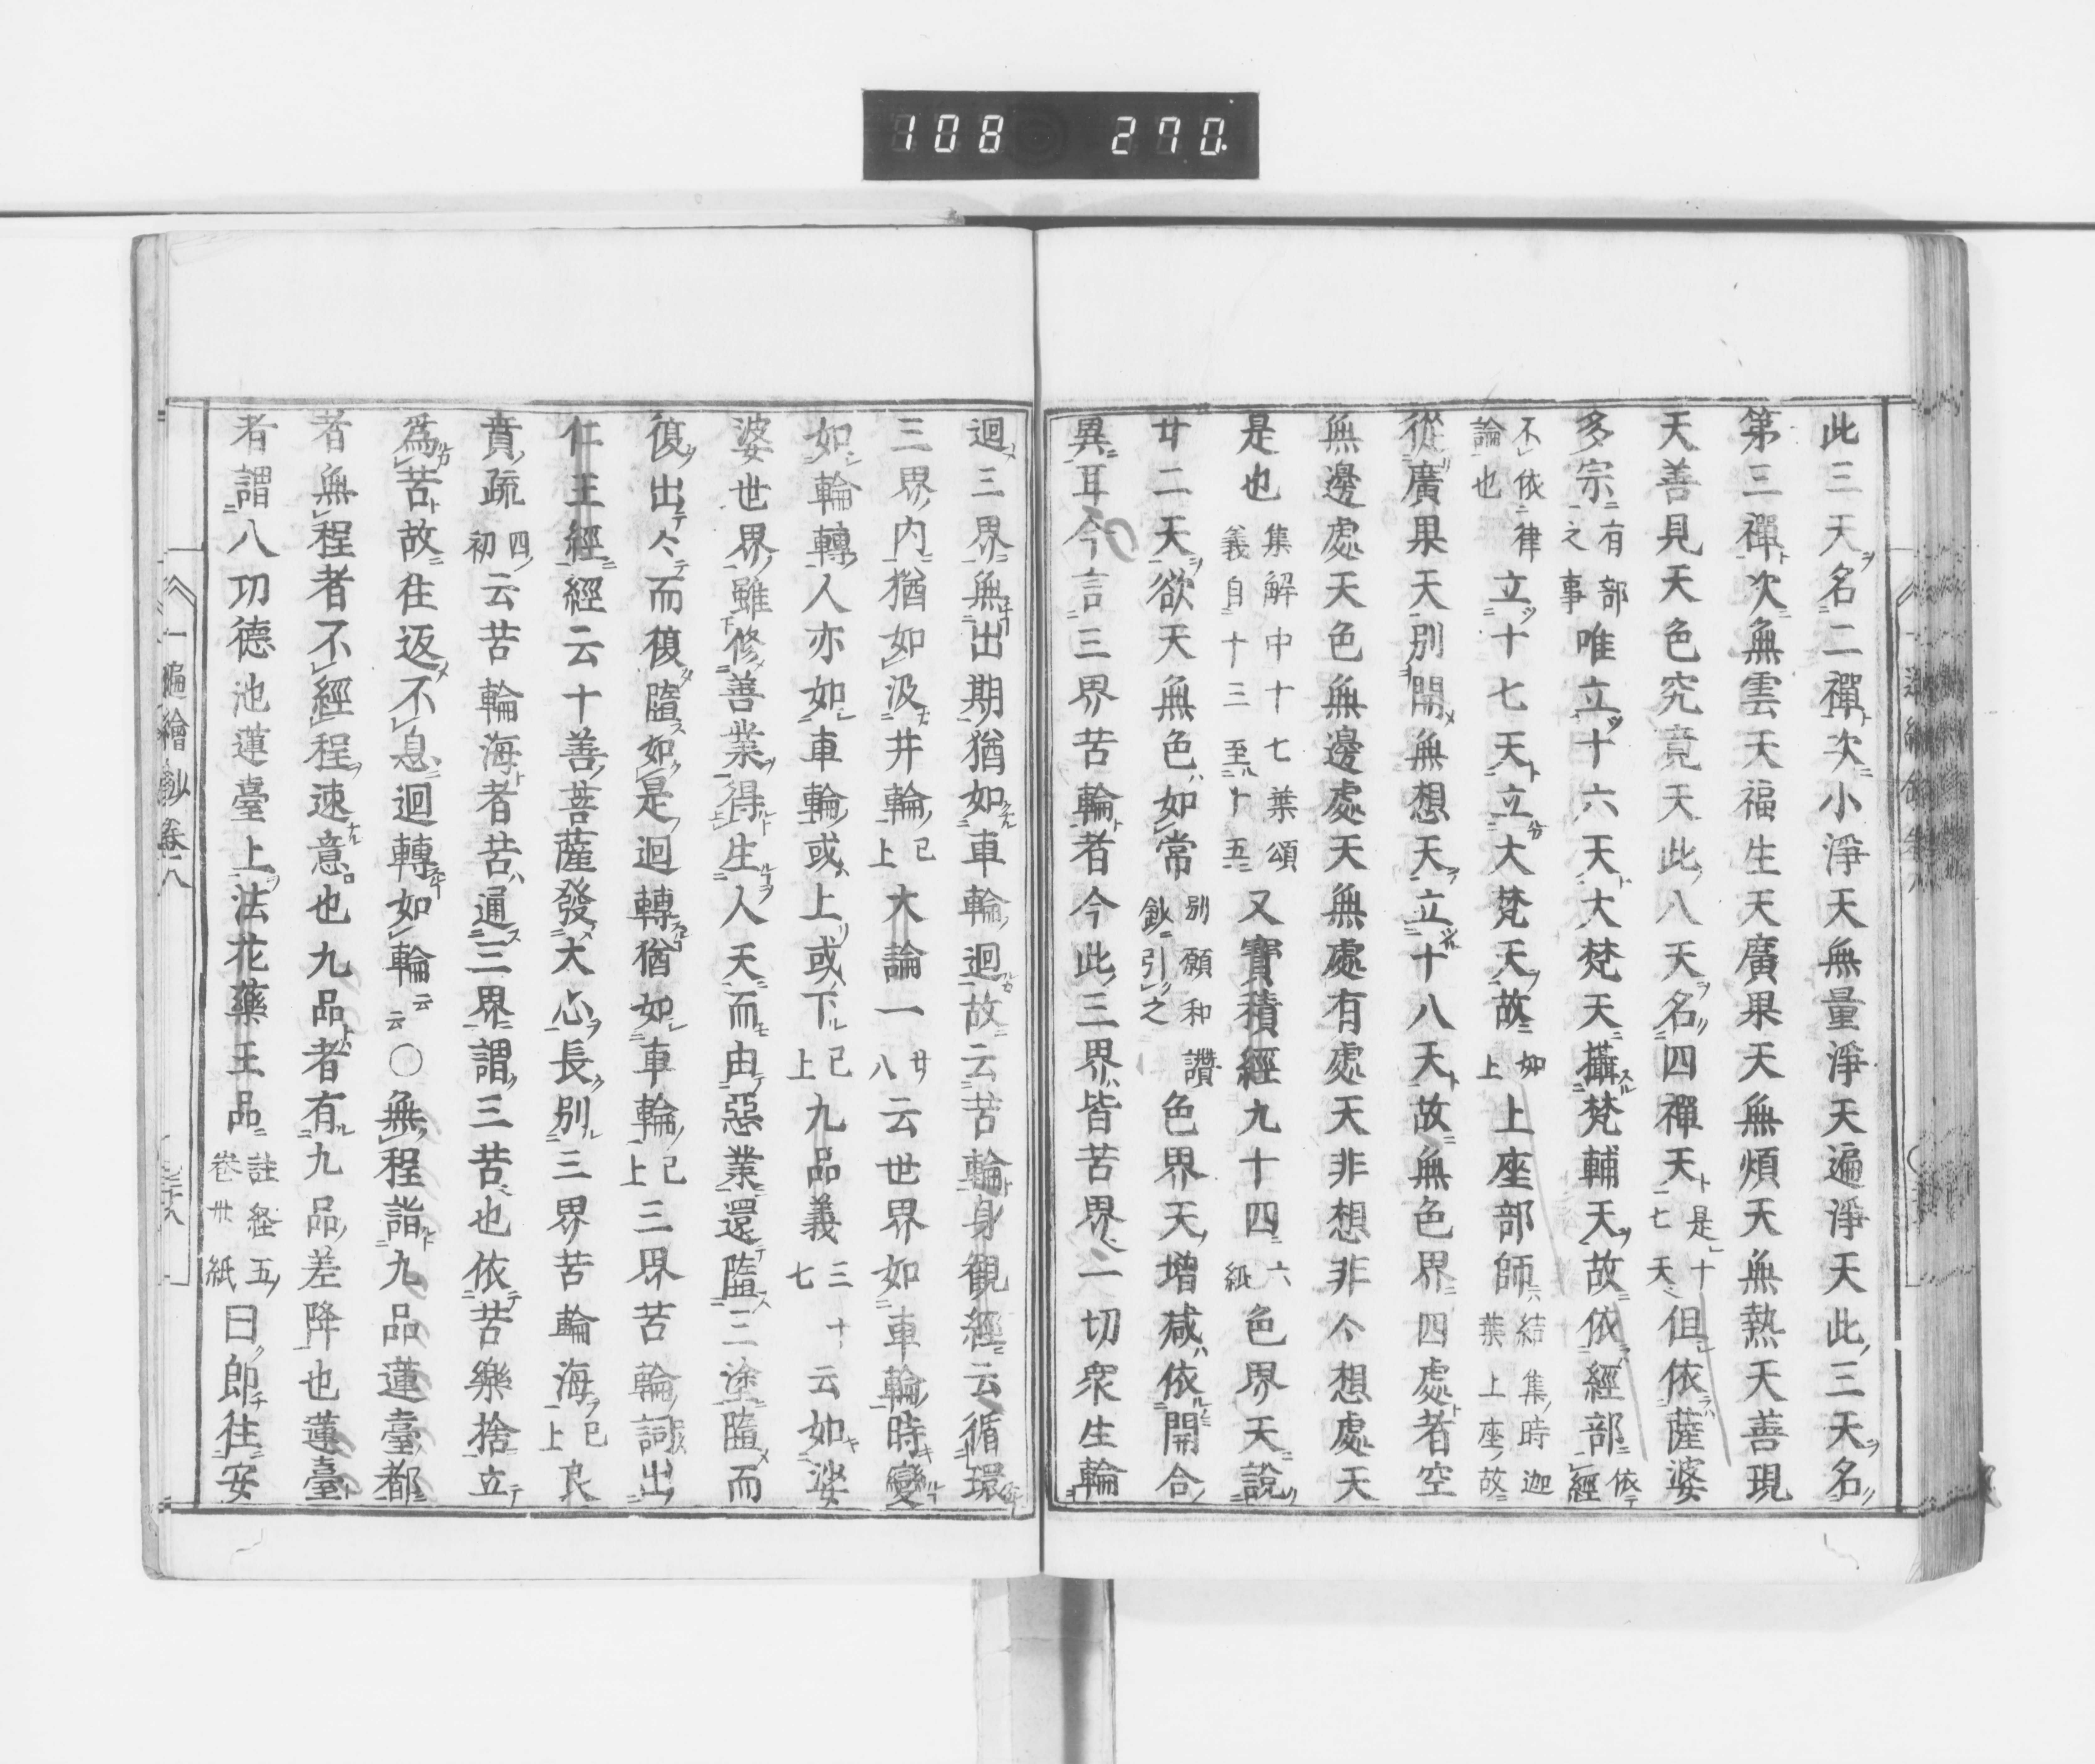 108 270
此三天名二禪次小淨天無量淨天遍淨天此三天名
第三禪次無雲天福生天廣果天無煩天無熱天善現
天善見天色究竟天此八天名四禪天是十七天但依薩婆
多宗有部之事唯立十六天大梵天攝梵輔天故依經部依經
不依律論也立十七天立大梵天故如上上座部師結集時迦葉上座故
從廣果天別開無想天立十八天故無色界四處者空
無邊處天色無邊處天無處有處天非想非今想處天
是也集解中十七葉頌義自十三至十五又寶積經九十四六紙色界天說
廿二天欲天無色如常別願和讚鈔引之色界天增减依開合
異耳今言三界苦輪者今此三界皆苦界一切衆生輪
迴三界無出期猶如車輪迴故云苦輪身観經云循環
三界内猶如汲井輪已上大論一廿八云世界如車輪時變
如輪轉人亦如車輪或上或下已上九品義三十七云如娑
婆世界雖修善業得生人天而由惡業還墮三塗墮而
復出々而複墮如是迴轉猶如車輪已上三界苦輪詞出
仁王經經云十善菩薩發大心長別三界苦輪海已上良
賁疏四初云苦輪海者苦通三界謂三苦也依苦樂捨立
爲苦故往返不息迴轉如輪云云〇無程詣九品蓮臺都
者無程者不經程速意也九品者有九品差降也蓮臺
者謂八功德池蓮臺上法花藥王品註経五卷卅紙曰即往安
一遍繪鈔卷八